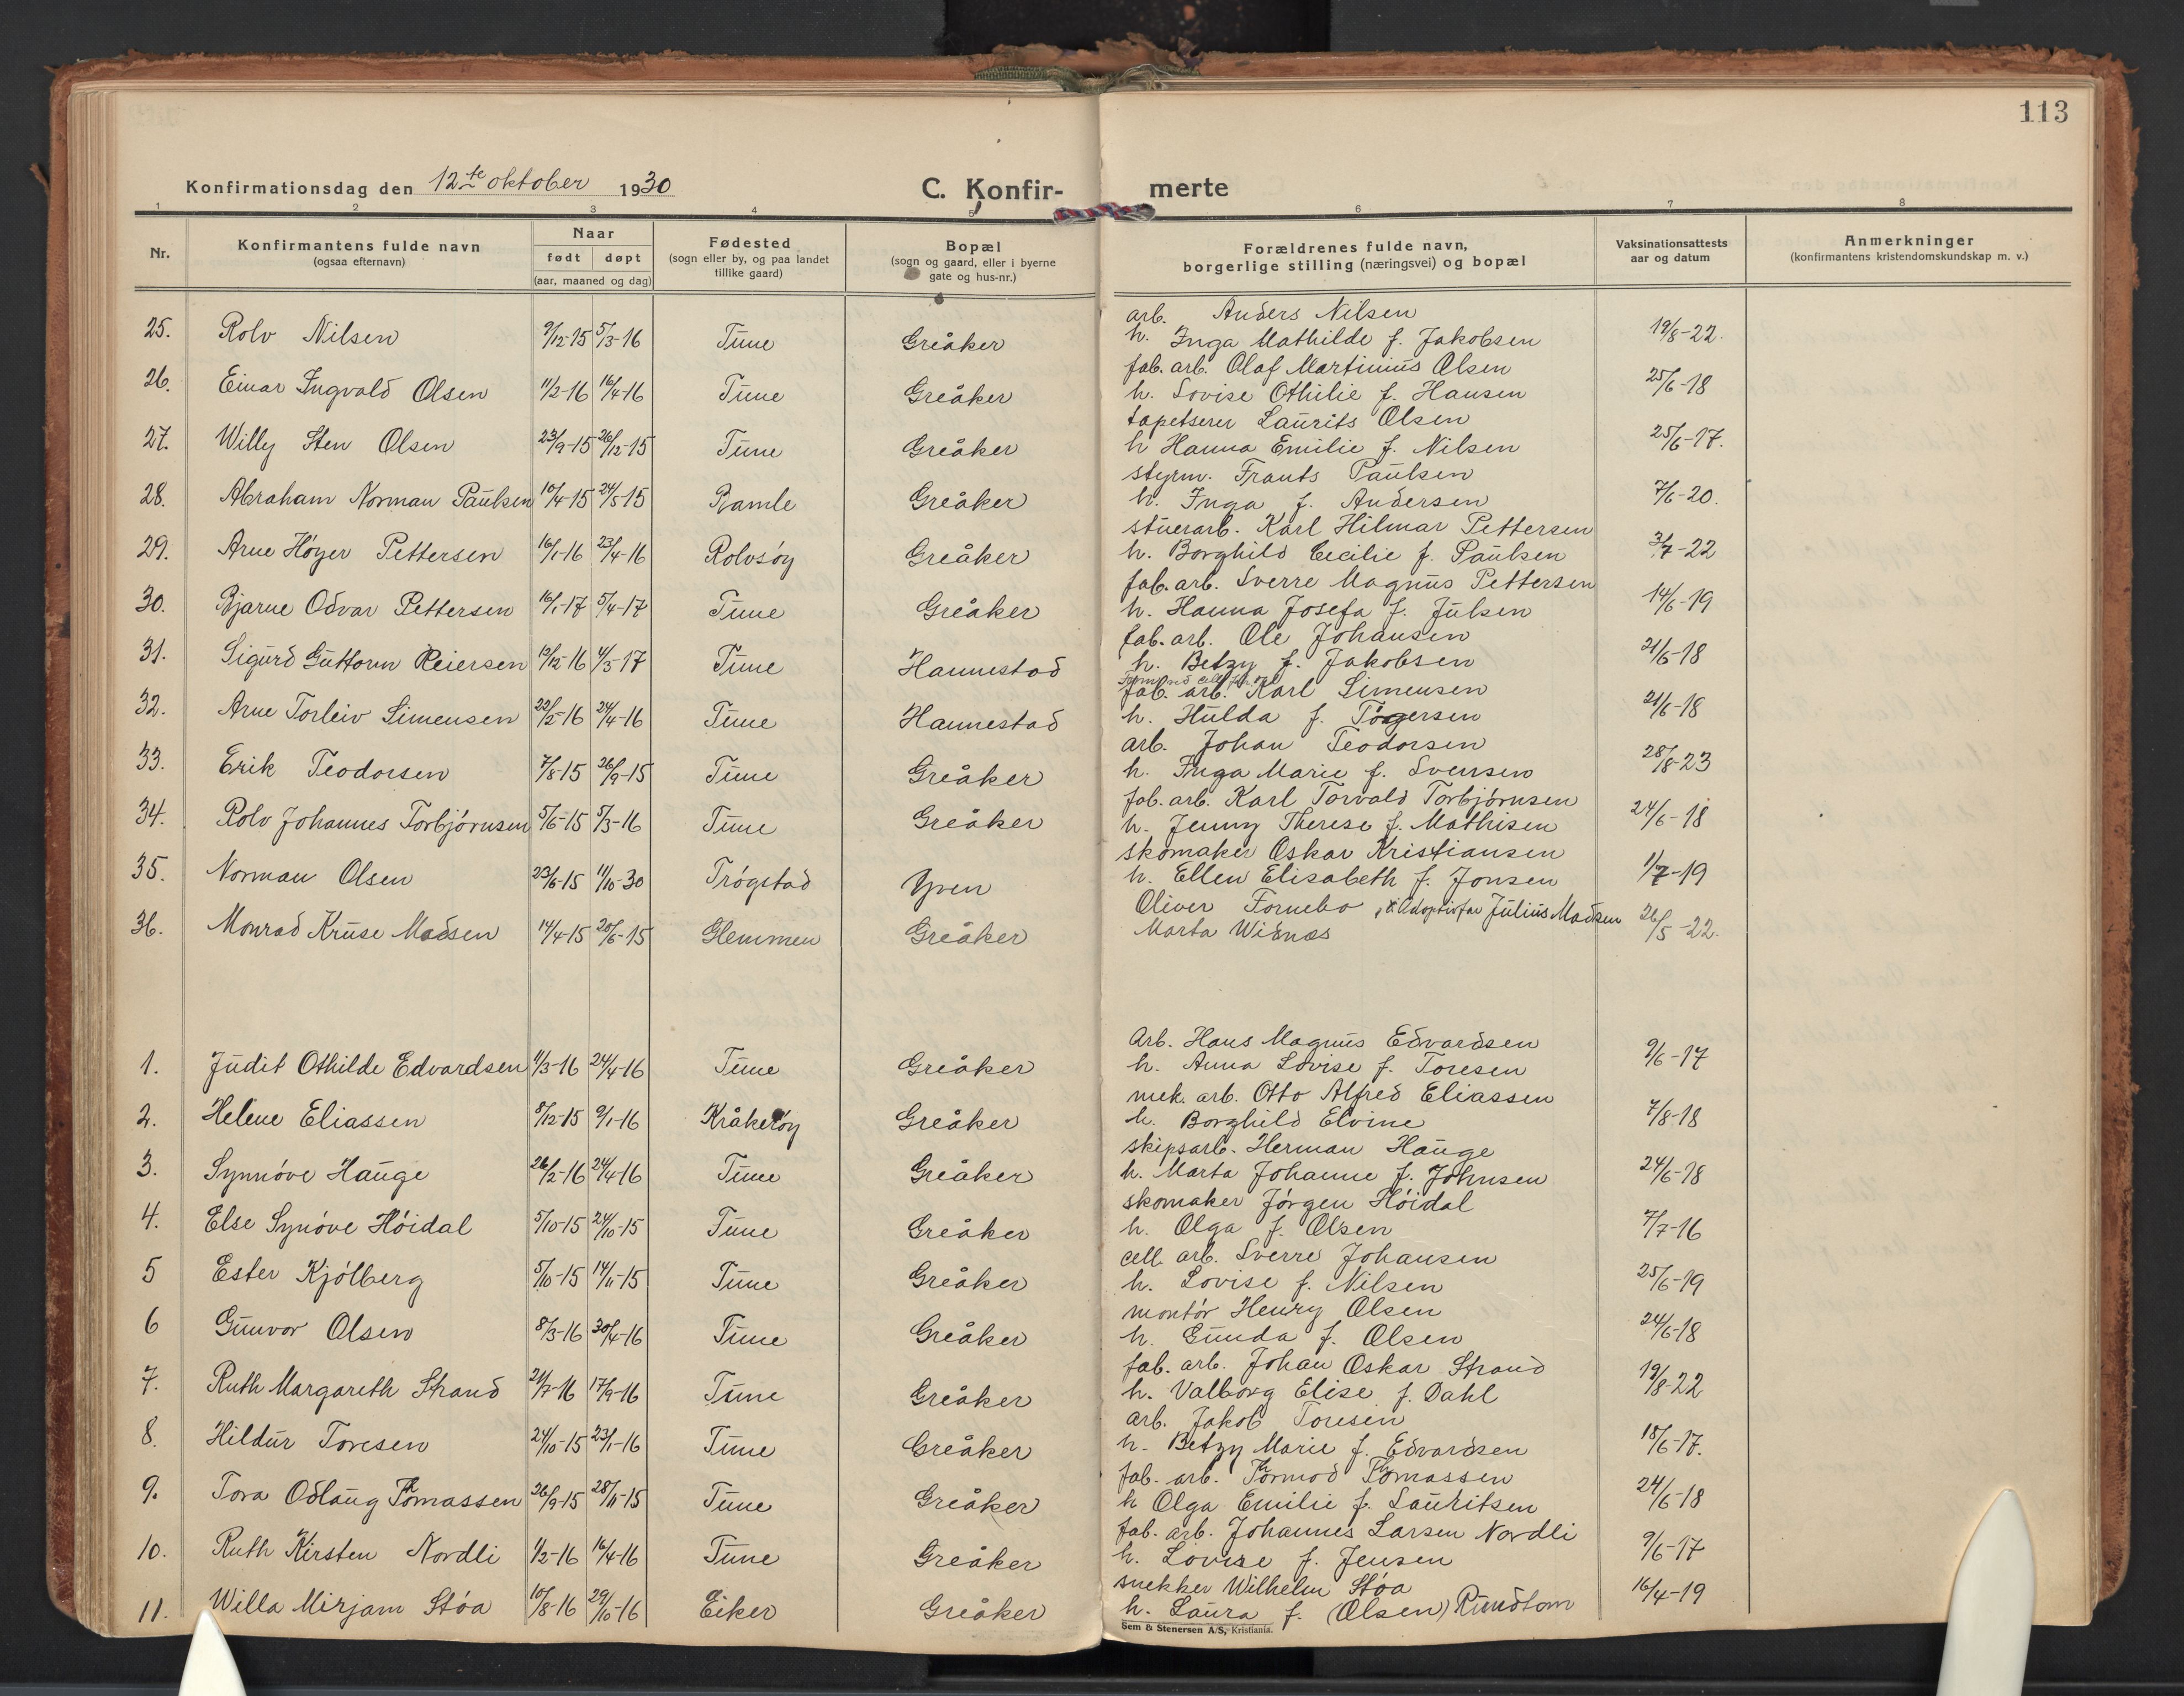 113
Konfirmationsdag den 12te oktober 1930 C. Konfir- merte
1 2 3 4 5 6 7 8
Nr. Konfirmantens fulde navn (ogsaa efternavn) Naar født døpt (aar, maaned og dag) Fødested (sogn eller by, og paa landet tillike gaard) Bopæl (sogn og gaard, eller i byerne gate og hus-nr.) Forældrenes fulde navn, borgerlige stilling (næringsvei) og bopæl Vaksinationsattests aar og datum Anmerkninger (konfirmantens kristendomskundskap m. v.)
arb. Anders Nilsen
25. Rolv Nilsen 9/12-15 5/3-16 Tune Greåker h. Inga Mathilde f. Jakobsen 19/8-22.
fab. arb. Olaf Martinius Olsen
26. Einar Ingvald Olsen 11/2-16 16/4-16 Tune Greåker h. Lovise Othilie f. Hansen 25/6-18
tapetserer Laurits Olsen
27. Willy Sten Olsen 23/9-15 26/12-15 Tune Greåker h Hanna Emilie f. Nilsen 25/6-17.
styrm. Frants Paulsen
28. Abraham Norman Paulsen 10/4-15 24/5-15 Bamle Greåker h. Inga f. Andersen 7/6-20.
stuerarb. Karl Hilmar Pettersen
29. Arne Höyer Pettersen 16/1-16 23/4-16 Rolvsöy Greåker h. Borghild Cecilie f. Paulsen 3/7-22
fab. arb. Sverre Magnus Pettersen
30. Bjarne Odvar Pettersen 16/1-17 5/4-17 Tune Greåker h. Hanna Josefa f. Julsen 14/6-19
fab. arb. Ole Johansen
31. Sigurd Guttorm Reiersen 19/12-16 4/3-17 Tune Hannestad h. Betzy f. Jakobsen 21/6-18
fab. arb. Karl Simensen
32. Arne Torleiv Simensen 22/2-16 24/4-16 Tune Hannestad h. Hulda f. Törgersen 21/6-18
arb. Johan Teodorsen
33. Erik Teodorsen 7/8-15 26/9-15 Tune Greåker h. Inga Marie f. Svensen 28/8-23
fab. arb. Karl Torvald Torbjörnsen
34. Rolv Johannes Torbjörnsen 5/6-15 5/3-16 Tune Greåker h. Jenny Therese f. Mathisen 24/6-18
skomaker Oskar Kristiansen
35. Norman Olsen 23/6-15 11/10-30 Trögstad Yven h. Ellen Elisabeth f. Jonsen 11/7-19
Oliver Fornebo, Adoptivfar Julius Madsen
36. Monrad Kruse Madsen 14/4-15 20/6-15 Glemmen Greåker Marta Widnæs 26/5-22.
Arb. Hans Magnus Edvardsen
1. Judit Othilde Edvardsen 11/3-16 24/4-16 Tune Greåker h. Anna Lovise f. Toresen 9/6-17
mek. arb. Otto Alfred Eliassen
2. Helene Eliassen 8/12-15 9/1-16 Kråkeröy Greåker h. Borghild Elvine 7/8-18
skipsarb. Herman Hauge
3. Synnöve Hauge 26/2-16 24/4-16 Tune Greåker h. Marta Johanne f. Johnsen 24/6-18
skomaker Jörgen Höidal
4. Else Synöve Höidal 5/10-15 24/10-15 Tune Greåker h. Olga f. Olsen 7/7-16
cell. arb. Sverre Johansen
5 Ester Kjölberg 5/10-15 14/11-15 Tune Greåker h. Lovise f. Nilsen 25/6-19
montör Henry Olsen
6 Gunvor Olsen 8/3-16 30/4-16 Tune Greåker h. Gunda f. Olsen 24/6-18
fab. arb. Johan Oskar Strand
7. Ruth Margareth Strand 21/7-16 17/9-16 Tune Greåker h. Valborg Elise f. Dahl 19/8-22
arb. Jakob Toresen
8. Hildur Toresen 24/10-15 23/1-16 Tune Greåker h. Betzy Marie f. Edvardsen 18/6-17.
fab. arb. Thormod Thomassen
9. Tora Odlaug Thomassen 26/9-15 28/11-15 Tune Greåker h Olga Emilie f. Lauritsen 24/6-18
fab. arb. Johannes Larsen Nordli
10. Ruth Kirsten Nordli 1/2-16 16/4-16 Tune Greåker h. Lovise f. Jensen 9/6-17
snekker Wilhelm Stöa
11. Willa Mirjam Stöa 10/8-16 29/10-16 Eiker Greåker h. Laura f. (Olsen) Rundtom 16/4-19
Sem & Stenersen A/S, Kristiania.